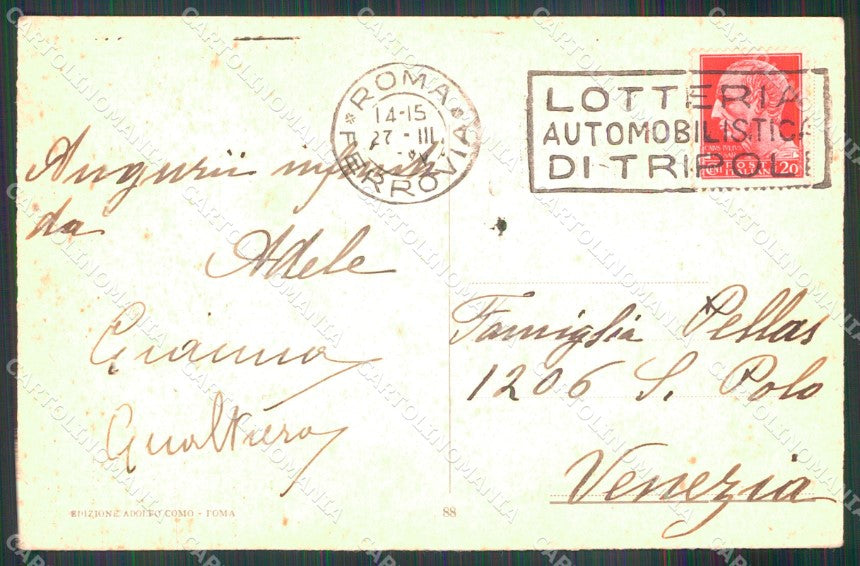 ROMA
FERROVIA
14-15
27 - III
LOTTERIA
AUTOMOBILISTICA
DI TRIPOLI
Auguri
da
Adele
Gianna
Gualtiero
Famiglia Pellas
1206 S. Polo
Venezia
EDIZIONE ADOLFO COMO - ROMA
88
20
CARTOLINOMANIA